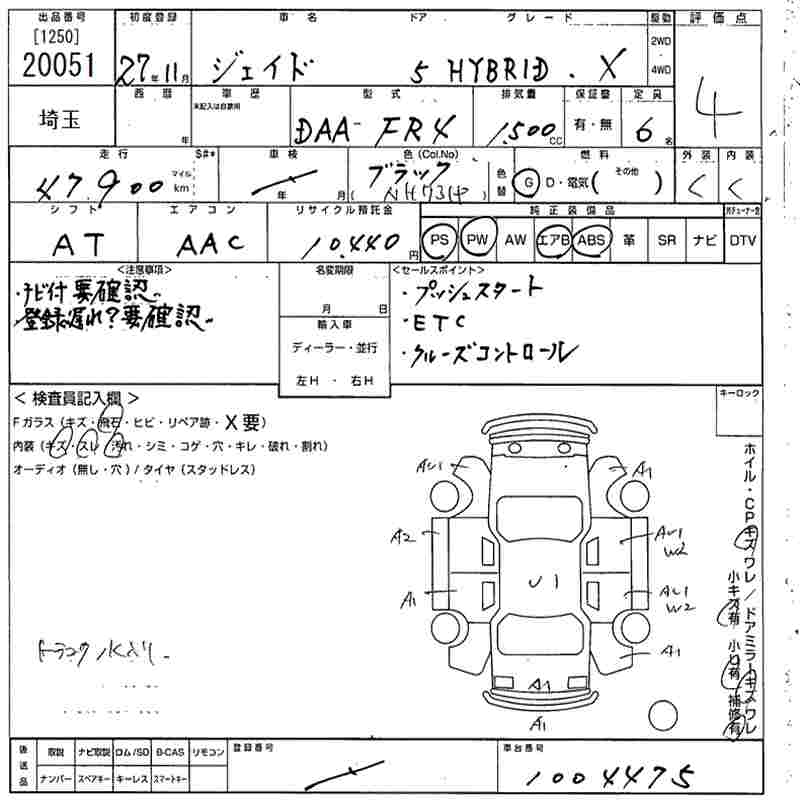 出品番号 初度登録 車名 ドア グレード 駆動 評価点
[1250]
20051 27年11月 ジェイド 5 HYBRID . X 2WD・4WD 4
埼玉 西暦 年 車歴 型式 排気量 保証書 定員
未記入は自家用
DAA-FR4 1,500cc 有・無 6名
走行 S#* 車検 色(Col,No) 燃料 外装 内装
47,900 マイル km 年 月 ブラック (NH731P) 色替 G D・電気( その他 ) C C
シフト エアコン リサイクル預託金 純正装備品
AT AAC 10,440円 PS PW AW エアB ABS 革 SR ナビ DTV
<注意事項> 名変期限 <セールスポイント>
・ナビ付要確認 ・プッシュスタート
登録遅れ?要確認 月 日 ・ETC
輸入車 ・クルーズコントロール
ディーラー・並行
左H ・ 右H
<検査員記入欄> キーロック
Fガラス(キズ・飛石・ヒビ・リペア跡・X要)
内装(キズ・スレ・汚れ・シミ・コゲ・穴・キレ・破れ・割れ)
オーディオ(無し・穴)/タイヤ(スタッドレス)
ホイル・CPキズワレ/ドアミラーキズワレ
小キズ有 小凹有 補修有
AU1 A1
A2 AU1 W2
U1
A1 AU1 W2
A1
A1
A1
後送品 取説 ナビ取説 ロム/SD B-CAS リモコン 登録番号 車台番号
ナンバー スペアキー キーレス スマートキー 1004475